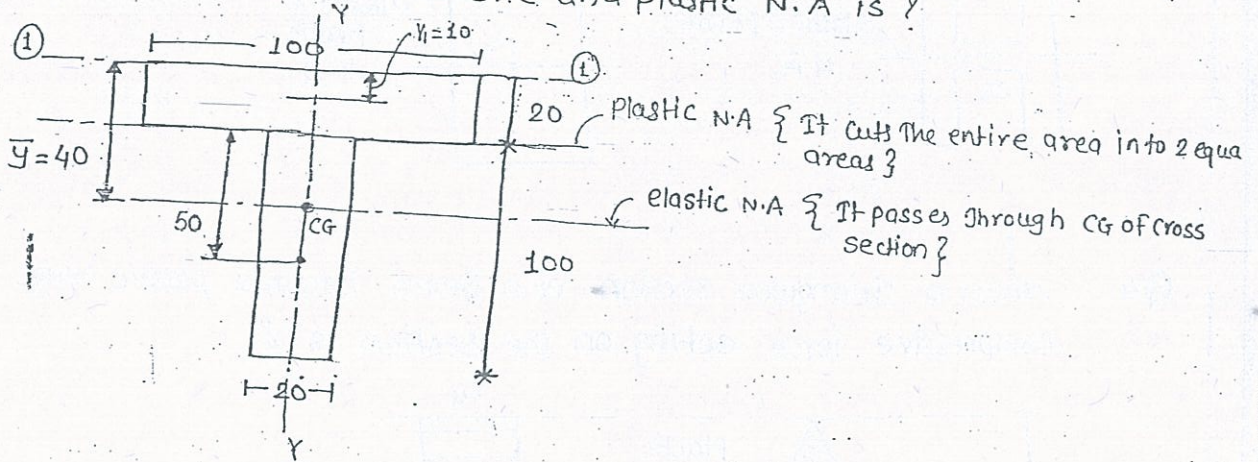 one and plastic N.A is ?
Y
① 100 y₁=10 ①
20
Plastic N.A { It cuts The entire area into 2 equa
areas }
ȳ=40
50
CG
elastic N.A { It passes through CG of cross
section }
100
20
Y